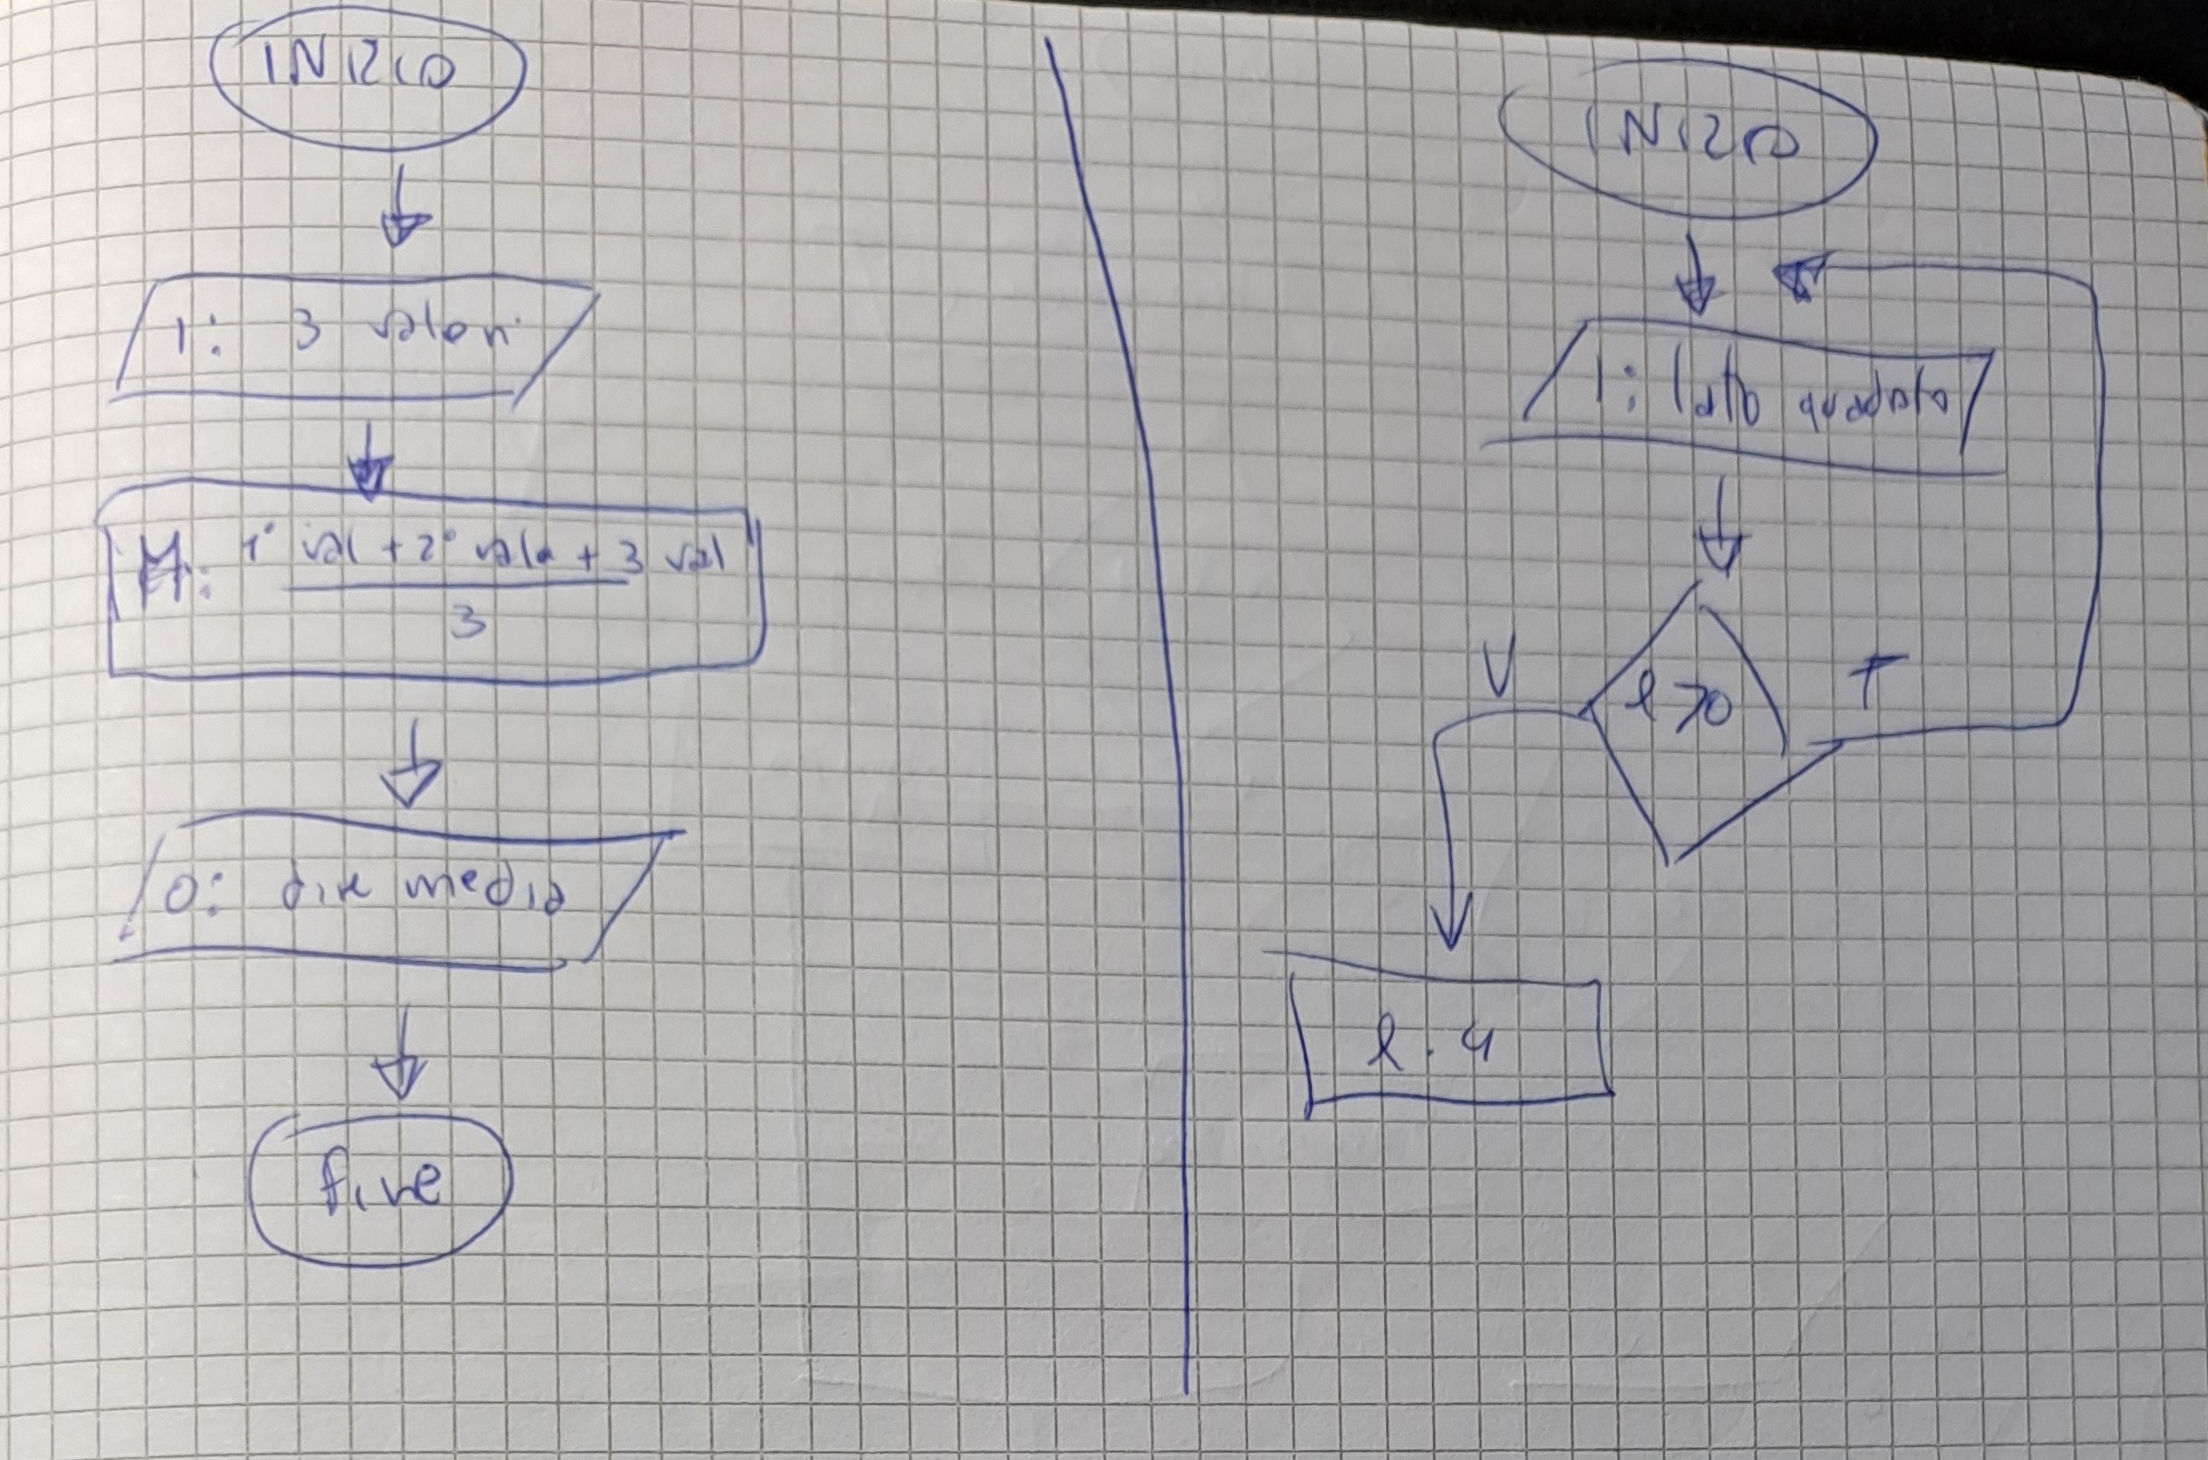 INIZIO
1: 3 valori
M: 1° val + 2° valo + 3 val
3
O: dire media
fine
INIZIO
1: lato quadrato
V
l > 0
F
l . 4